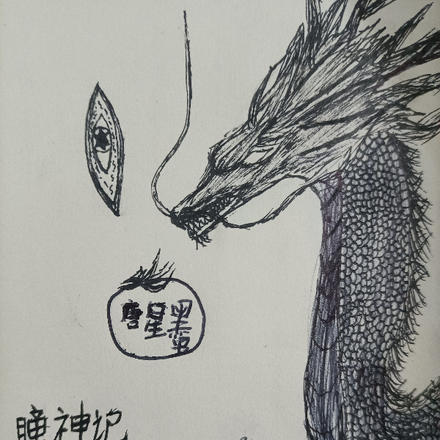 唐星墨
瞳神记